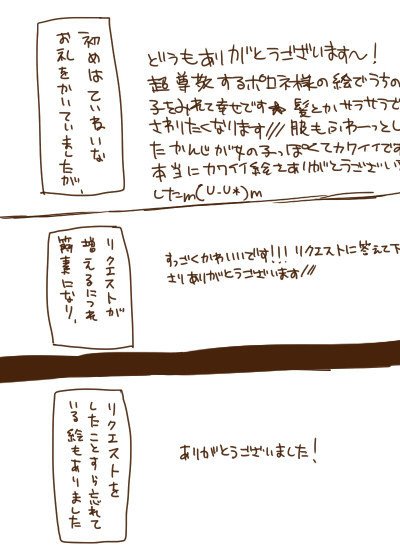 初めはていねいな
お礼をかいていましたが、
どうもありがとうございます〜!
超尊敬するポロネ様の絵でうちの
子をみれて幸せです★髪とかサラサラで
さわりたくなります///服もふわーっとし
たかんじが女の子っぽくてカワイイです
本当にカワイイ絵をありがとうございま
したm(U-U*)m
リクエストが
増えるにつれ
簡素になり、
すっごくかわいいです!!!リクエストに答えて下
さりありがとうございます//
リクエストを
したことすら忘れて
いる絵もありました
ありがとうございました!